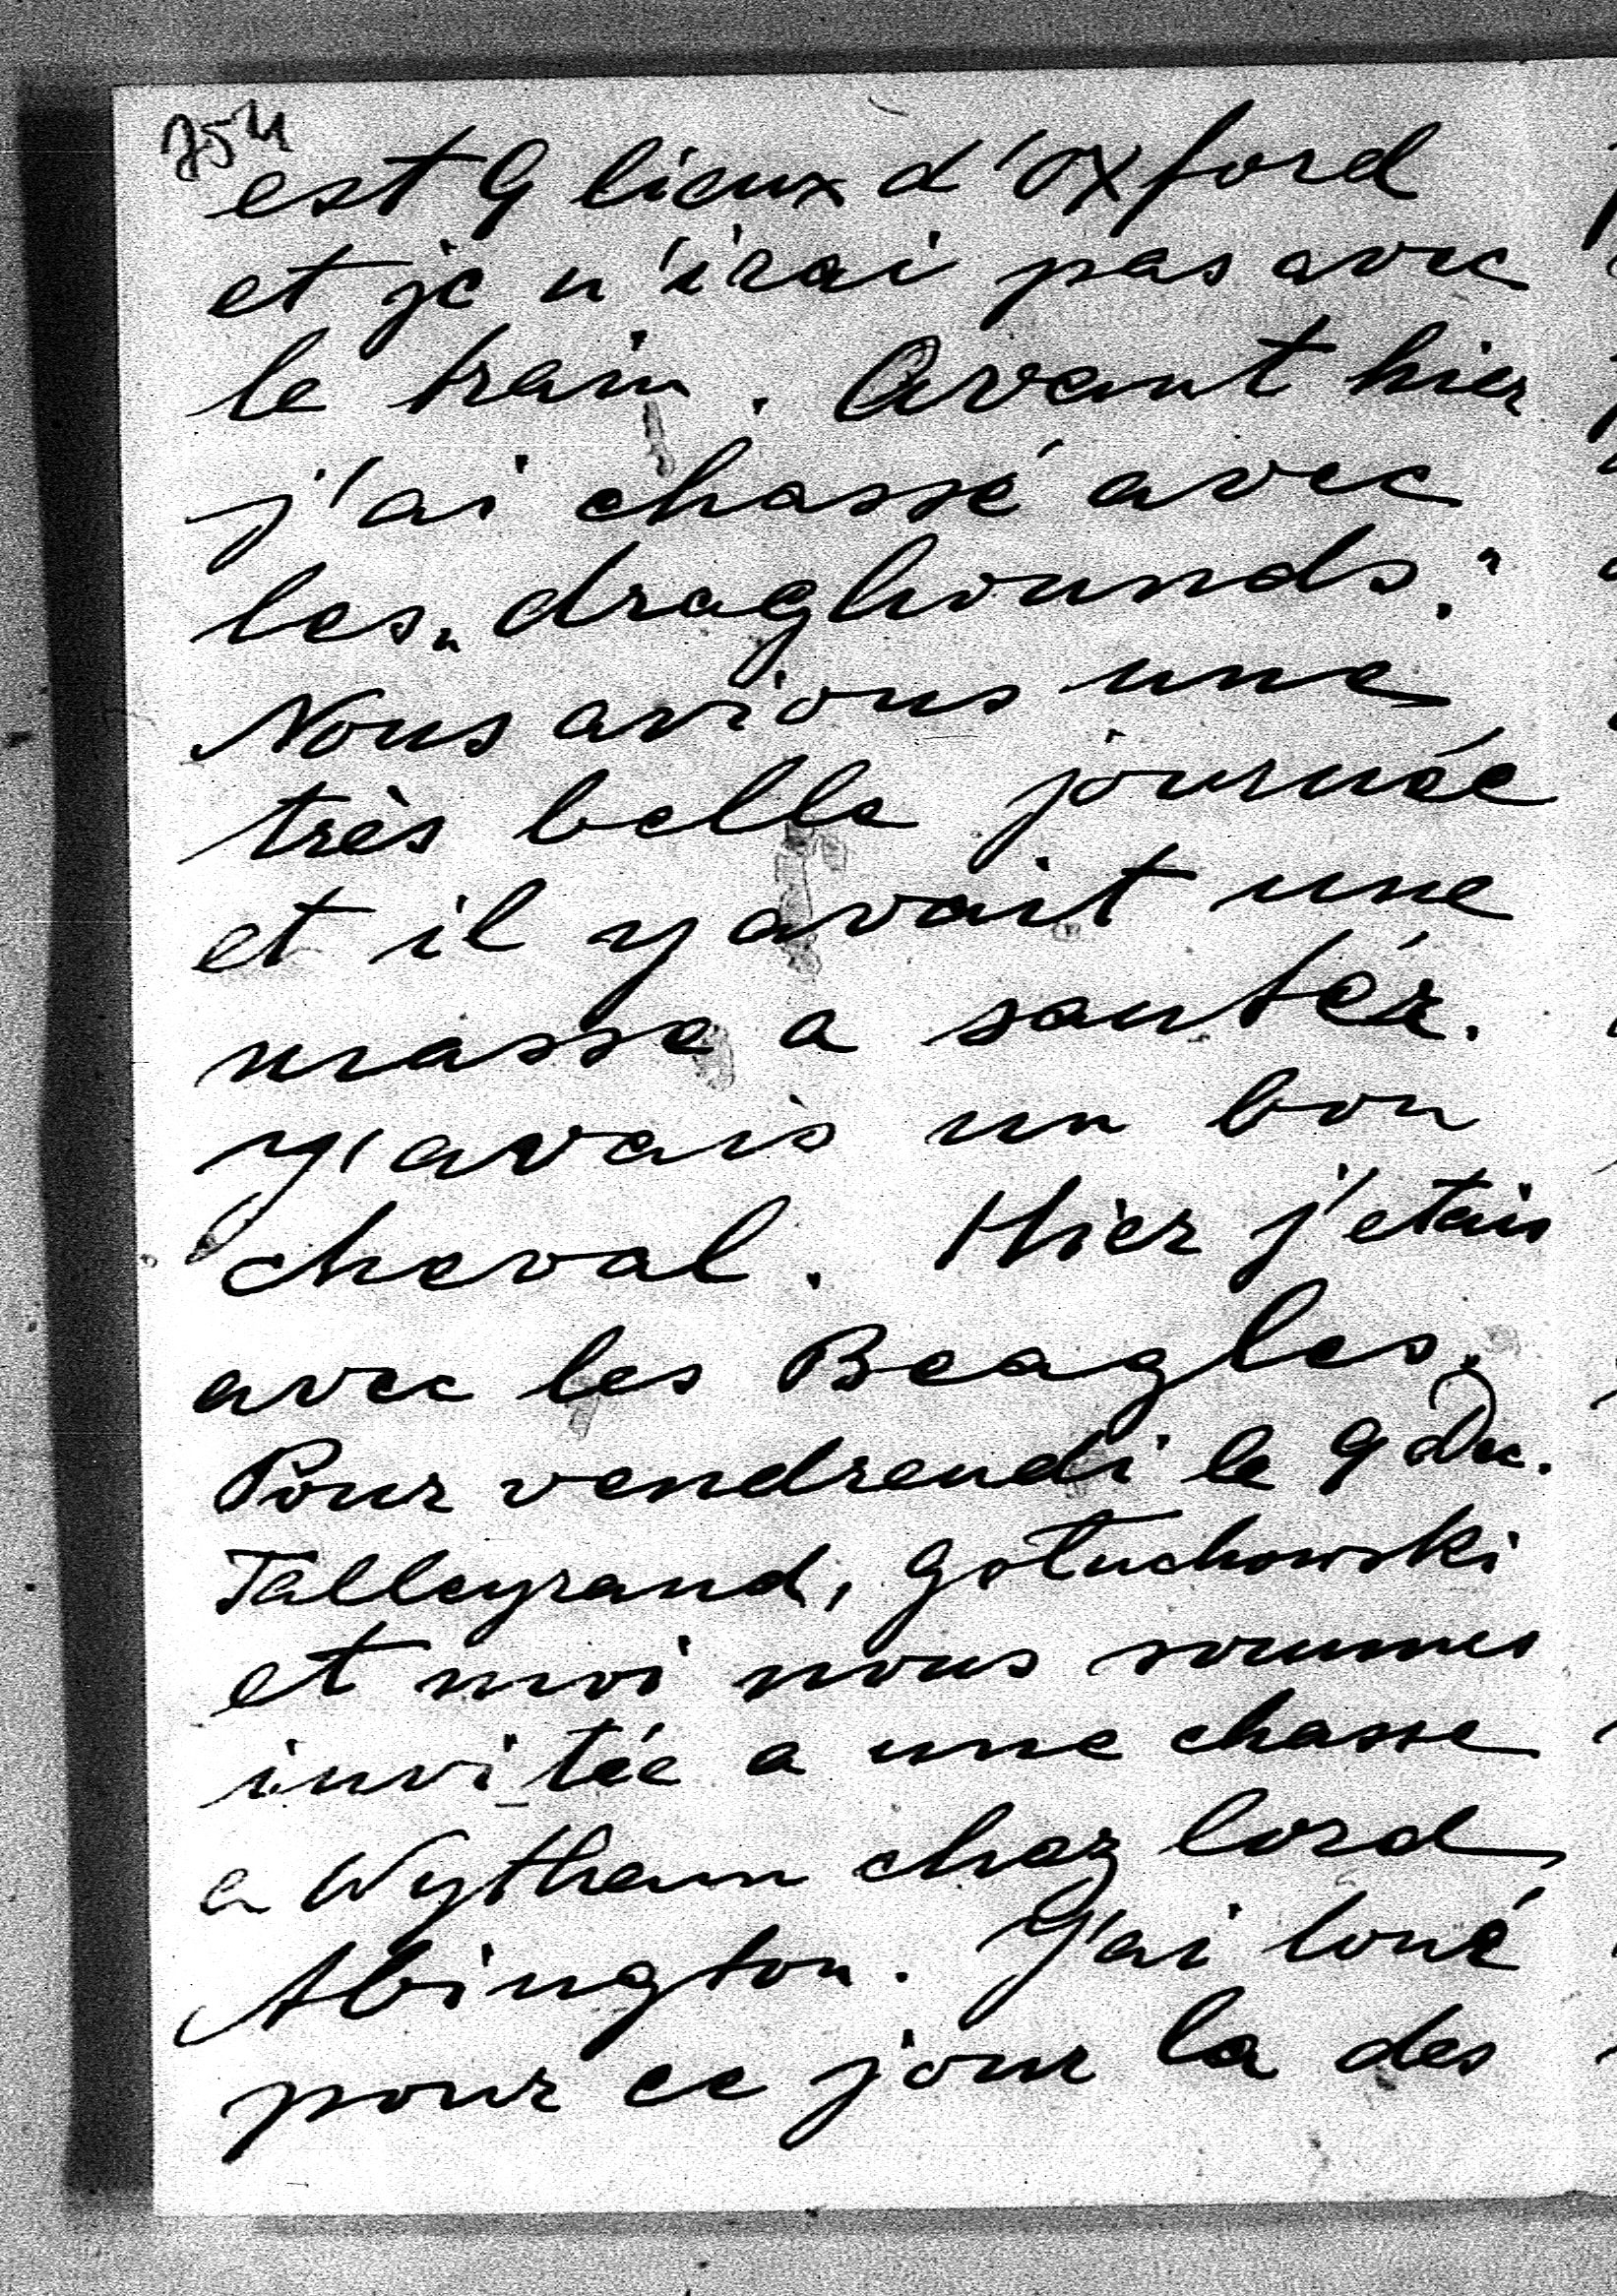 754
est 9 lieux d'Oxford
et je n'irai pas avec
le train. Avant hier
j'ai chassé avec
les „draghounds."
Nous avions une
très belle journée
et il y avait une
masse a sautér.
J'avais un bon
cheval. Hier j'etais
avec les Beagles.
Pour vendrendi le 9 Dec.
Talleyrand, Gołuchowski
et moi nous sommes
invitée a une chasse
a Wytham chez lord
Abington. J'ai loué
pour ce jour la des